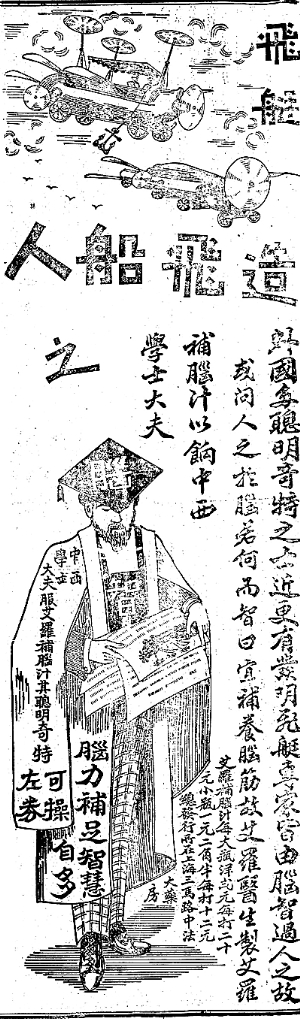 飛艇
造飛船人
之
國多聰明奇特之士近更有發明飛艇皆由腦智過人之故
或問人之於腦若何而智曰宜補養腦筋故艾羅醫生製艾羅
補腦汁以餉中西
學士大夫
艾羅補腦汁每大瓶洋弍元每打二十
元小瓶一元二角半每打十二元
總發行所在上海三馬路中法
大藥
房
中西
學士
大夫服艾羅補腦汁其聰明奇特
可操
左券
腦力補足智慧
自多